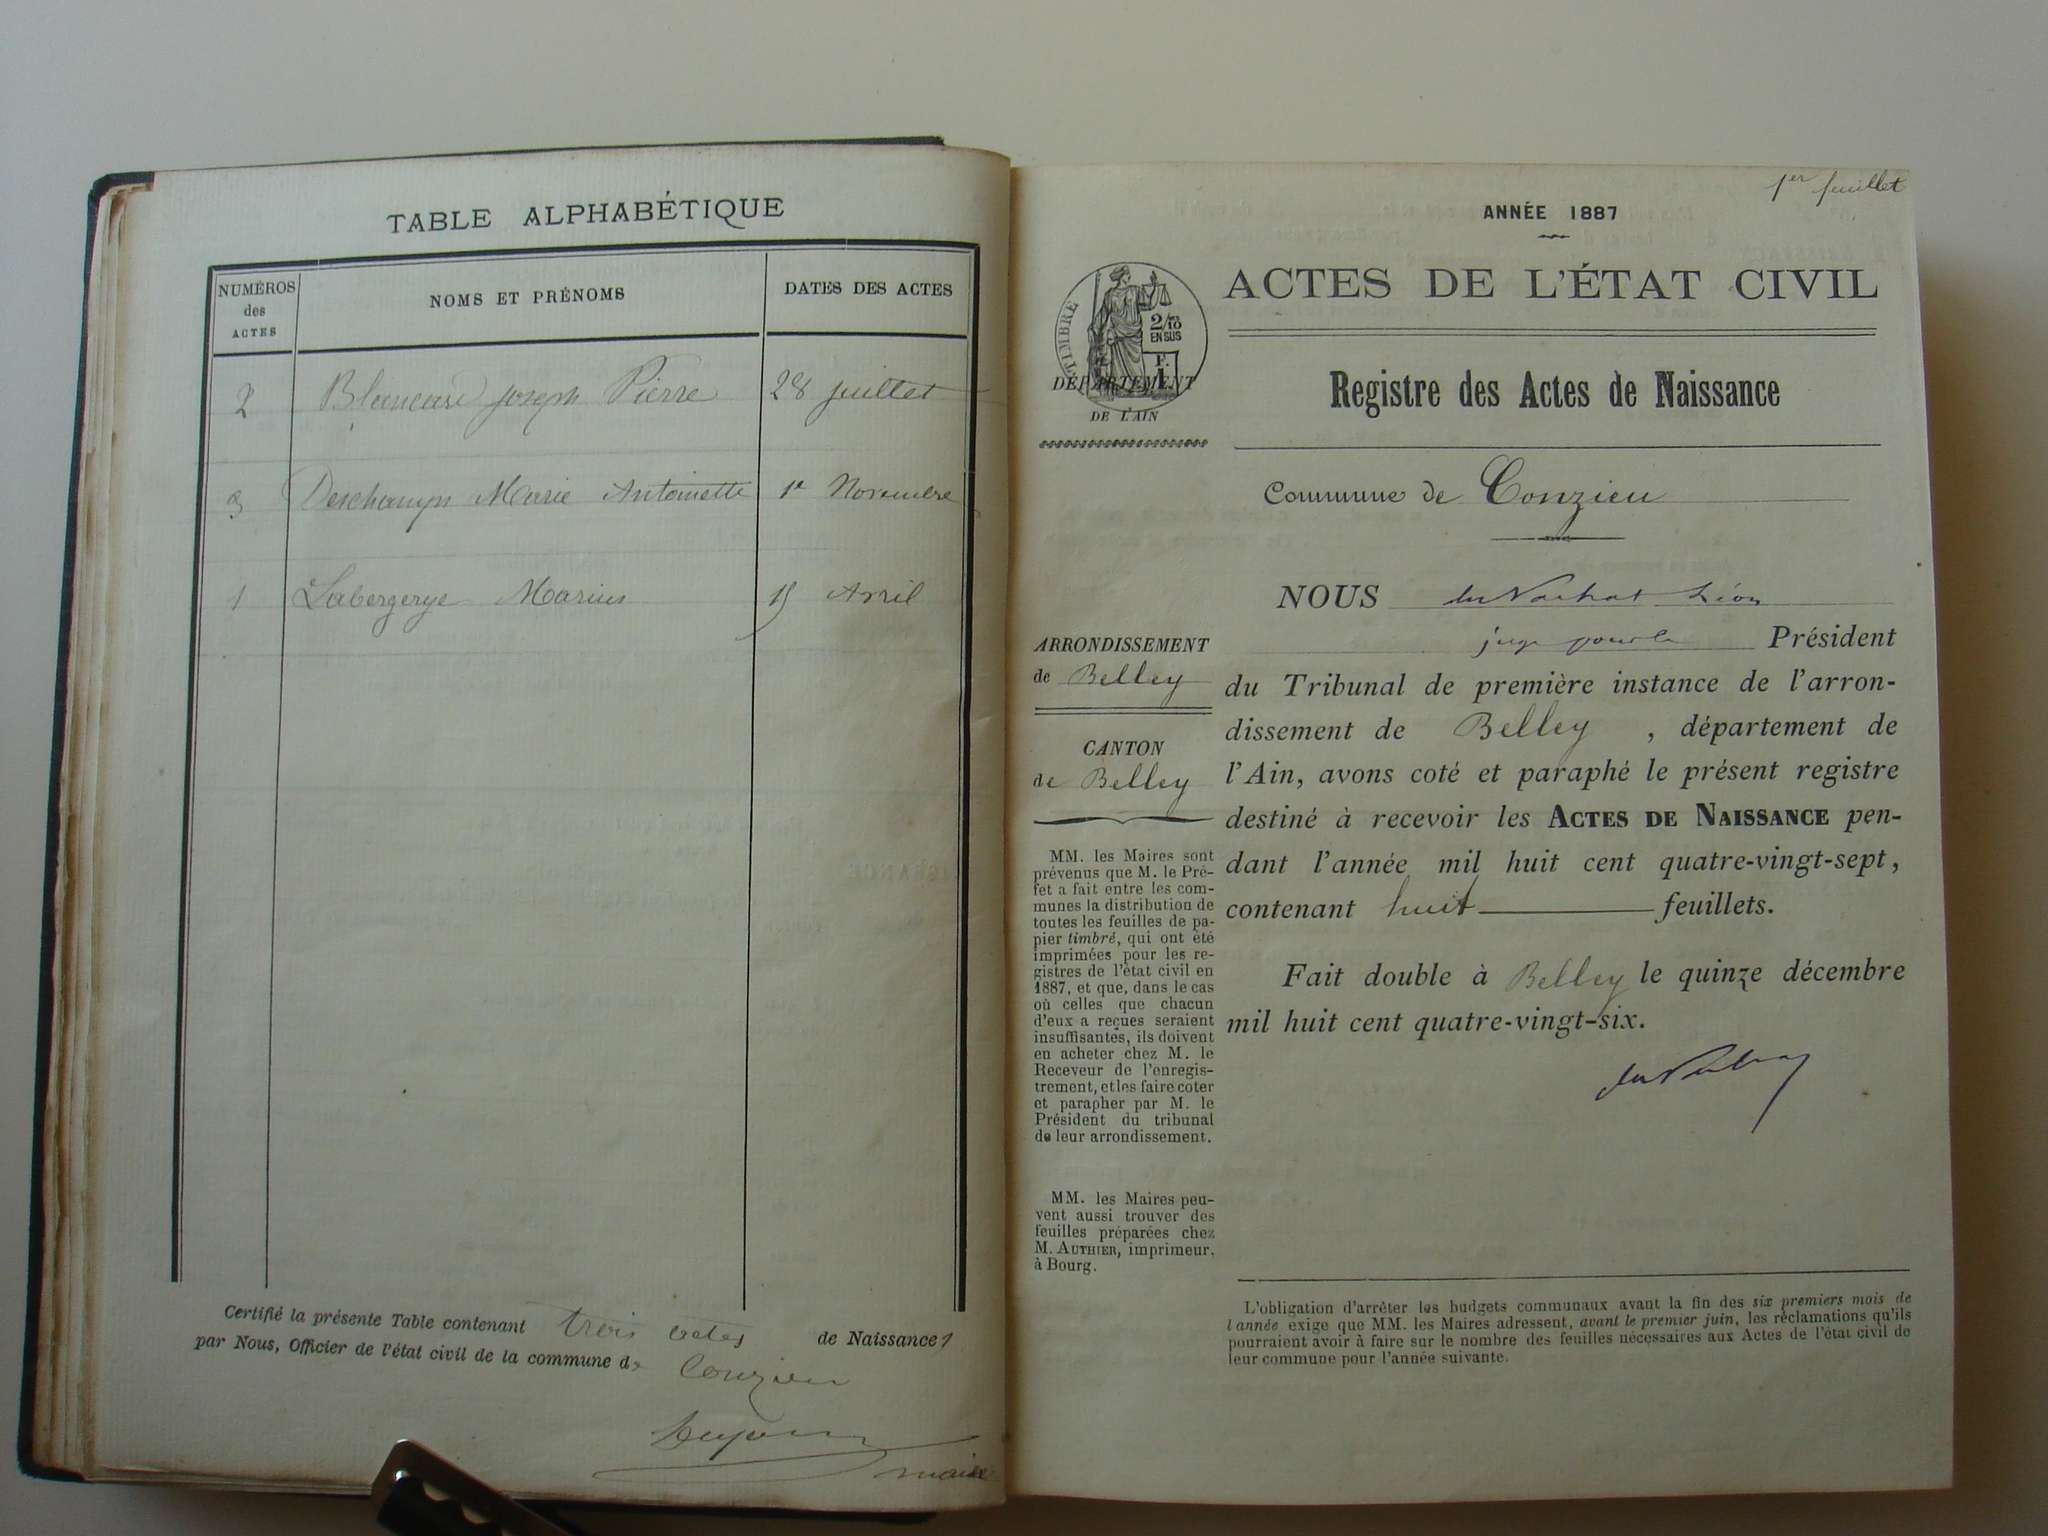 TABLE ALPHABÉTIQUE
NUMÉROS
des
ACTES
NOMS ET PRÉNOMS
DATES DES ACTES
2 Joseph Pierre 28 juillet
3 Deschamps Marie Antoinette 1e Novembre
1 Labergerye Marius 15 Avril
Certifié la présente Table contenant trois actes de Naissance
par Nous, Officier de l'état civil de la commune de Conzieu
maire
1er feuillet
ANNÉE 1887
ACTES DE L'ÉTAT CIVIL
TIMBRE
2/10
EN SUS
F.
1
DÉPARTEMENT
DE L'AIN
Registre des Actes de Naissance
Commune de Conzieu
NOUS Léon
juge pour le Président
du Tribunal de première instance de l'arron-
dissement de Belley, département de
l'Ain, avons coté et paraphé le présent registre
destiné à recevoir les ACTES DE NAISSANCE pen-
dant l'année mil huit cent quatre-vingt-sept,
contenant huit feuillets.
Fait double à Belley le quinze décembre
mil huit cent quatre-vingt-six.
ARRONDISSEMENT
de Belley
CANTON
de Belley
MM. les Maires sont
prévenus que M. le Pré-
fet a fait entre les com-
munes la distribution de
toutes les feuilles de pa-
pier timbré, qui ont été
imprimées pour les re-
gistres de l'état civil en
1887, et que, dans le cas
où celles que chacun
d'eux a reçues seraient
insuffisantes, ils doivent
en acheter chez M. le
Receveur de l'enregis-
trement, et les faire coter
et parapher par M. le
Président du tribunal
de leur arrondissement.
MM. les Maires peu-
vent aussi trouver des
feuilles préparées chez
M. AUTHIER, imprimeur,
à Bourg.
L'obligation d'arrêter les budgets communaux avant la fin des six premiers mois de
l'année exige que MM. les Maires adressent, avant le premier juin, les réclamations qu'ils
pourraient avoir à faire sur le nombre des feuilles nécessaires aux Actes de l'état civil de
leur commune pour l'année suivante.